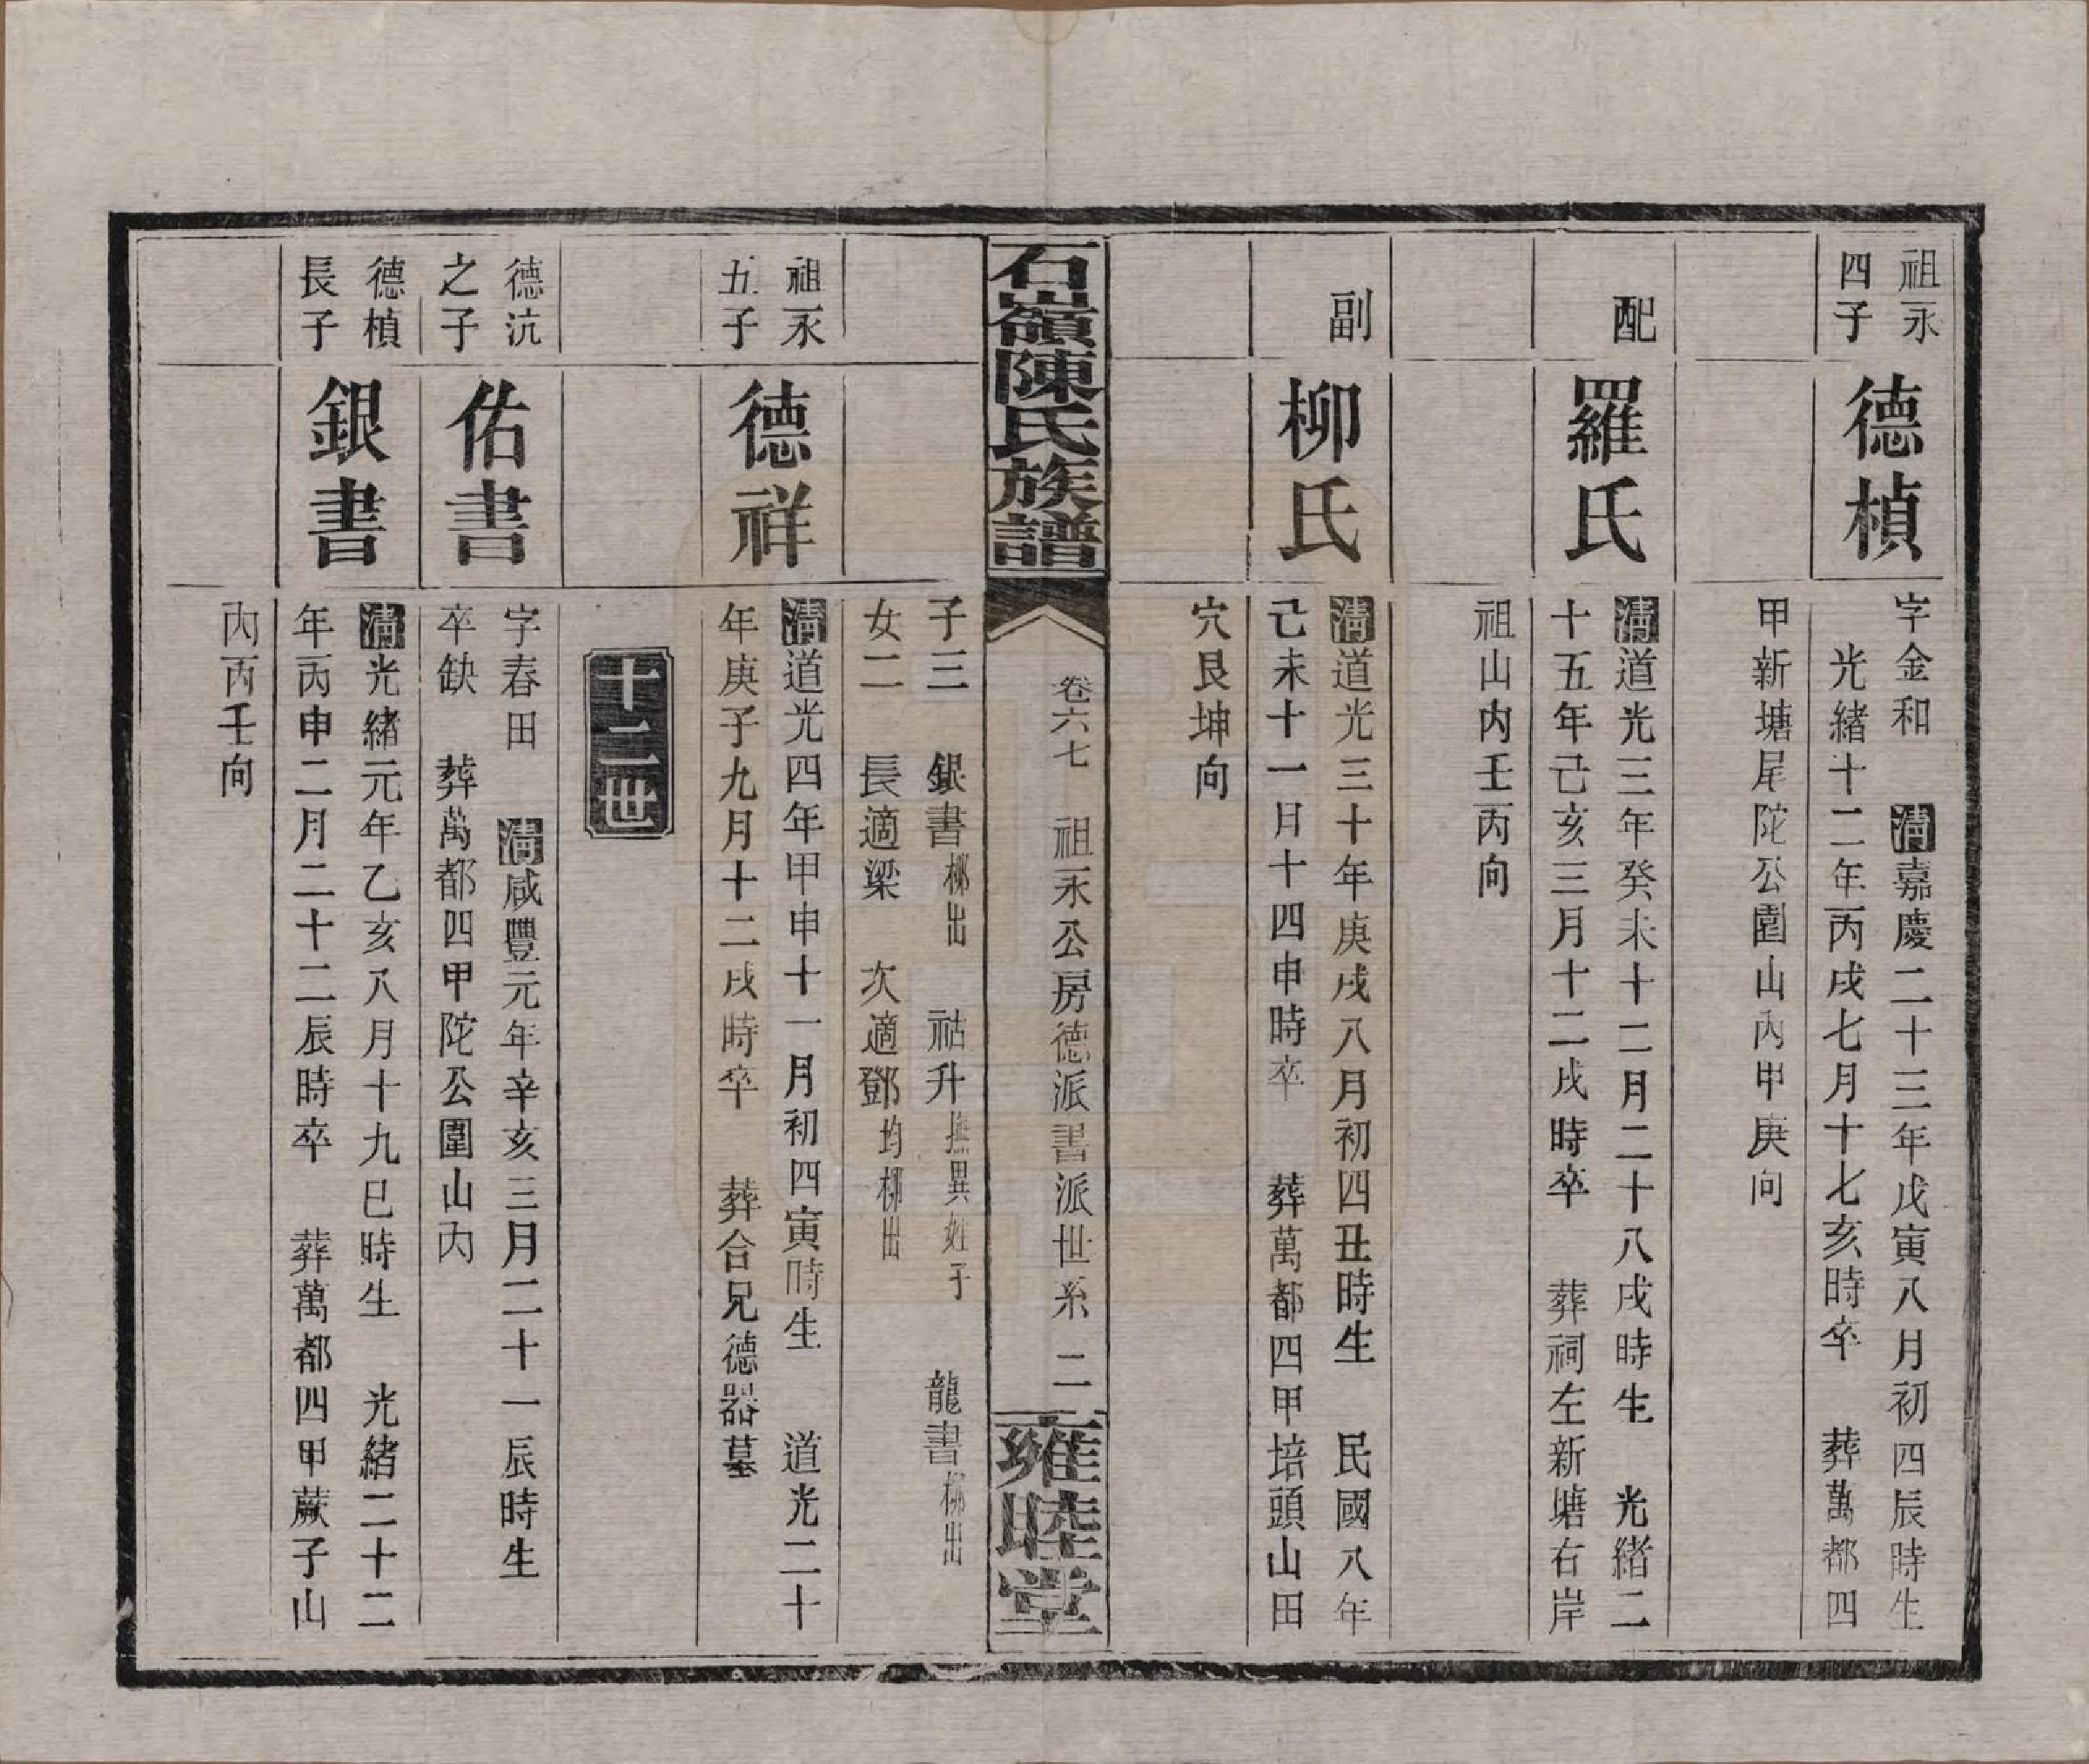 祖永
四子
德楨
字金和　清嘉慶二十三年戊寅八月初四辰時生
光緒十二年丙戌七月十七亥時卒　葬萬都四
甲新塘尾陀公圍山內甲庚向
配
羅氏
清道光三年癸未十二月二十八戌時生　光緒二
十五年己亥三月十二戌時卒　葬祠左新塘右岸
祖山内壬丙向
副
柳氏
清道光三十年庚戌八月初四丑時生　民國八年
己未十一月十四申時卒　葬萬都四甲培頭山田
穴艮坤向
石嶺陳氏族譜
卷六七　祖永公房德派書派世系　二
雍睦堂
子三　銀書柳出　祜升撫異姓子　龍書柳出
女二　長適梁　次適鄧均柳出
祖永
五子
德祥
清道光四年甲申十一月初四寅時生　道光二十
年庚子九月十二戌時卒　葬合兄德器墓
十二世
德沆
之子
佑書
字春田　清咸豐元年辛亥三月二十一辰時生
卒缺　葬萬都四甲陀公圍山内
德楨
長子
銀書
清光緒元年乙亥八月十九巳時生　光緒二十二
年丙申二月二十二辰時卒　葬萬都四甲蕨子山
内丙壬向